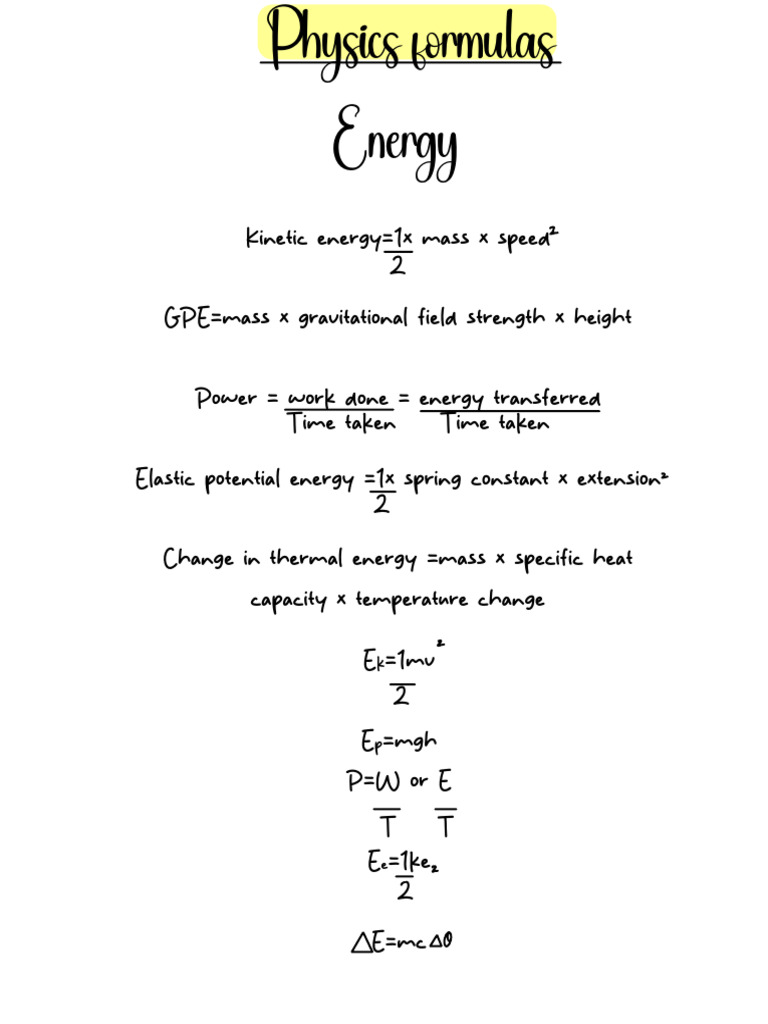 Physics formulas
Energy
Kinetic energy=1x mass x speed²
2
GPE=mass x gravitational field strength x height
Power = work done = energy transferred
Time taken Time taken
Elastic potential energy =1x spring constant x extension²
2
Change in thermal energy =mass x specific heat
capacity x temperature change
Ek=1mv²
2
Ep=mgh
P=W or E
T T
Ee=1ke₂
2
△E=mc△θ